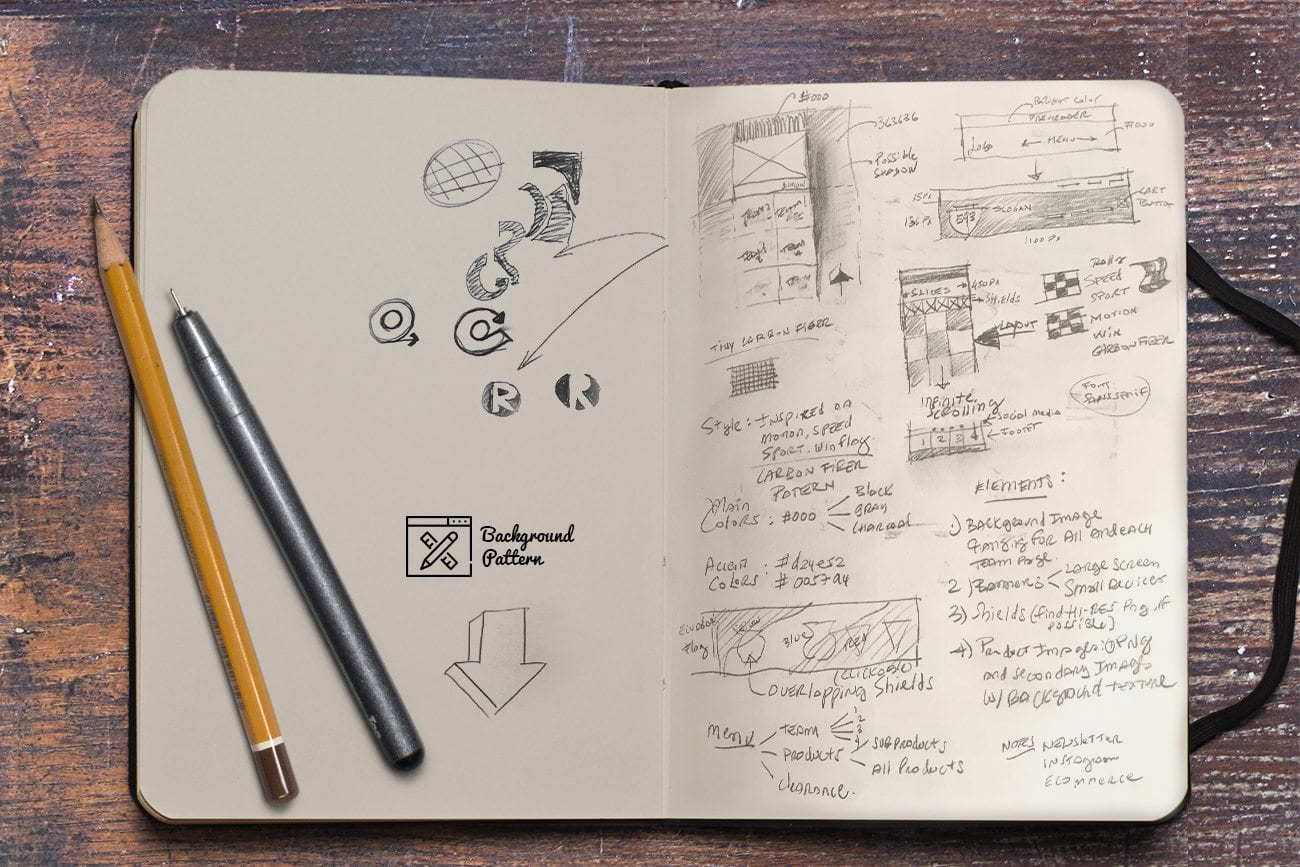 R
R
Background
Pattern
#000
363636
Possible
SHADOW
BRIGHT Color
PREHEADER
Logo
MENU
#000
35 Px
SLOGAN
CART
BUTTON
593
1100 Px
SLIDES
450 Px
SHIELDS
SPEED
SPORT
LAYOUT
MOTION
WIN
CARBON FIBER
TINY CARBON FIBER
FONT:
SANS SERIF
INFINITE
SCROLLING
SOCIAL MEDIA
FOOTER
1 2 3 4
Style: INSPIRED on
MOTION, SPEED
SPORT. WIN flag
CARBON FIBER
PATERN
Main
COLORS: #000
Black
GRAY
CHARCOAL
Accent
COLORS:
#d24e52
#0057a4
ELEMENTS:
1) BACKGROUND IMAGE
FOR All and EACH
TEAM PAGE.
2) BANNERS
LARGE SCREEN
Small Devices
3) Shields (find HI-RES Png if
possible)
4) Product Images:
and secondary Image
W/ BACKGROUND TEXTURE
flag
BLUE
RED
(CLICKABLE)
OVERLAPPING Shields
Menu
TEAM
1
2
3
4
PRODUCTS
SUBPRODUCTS
All Products
Clearance.
NOTES
NEWSLETTER
INSTAGRAM
ECOMMERCE